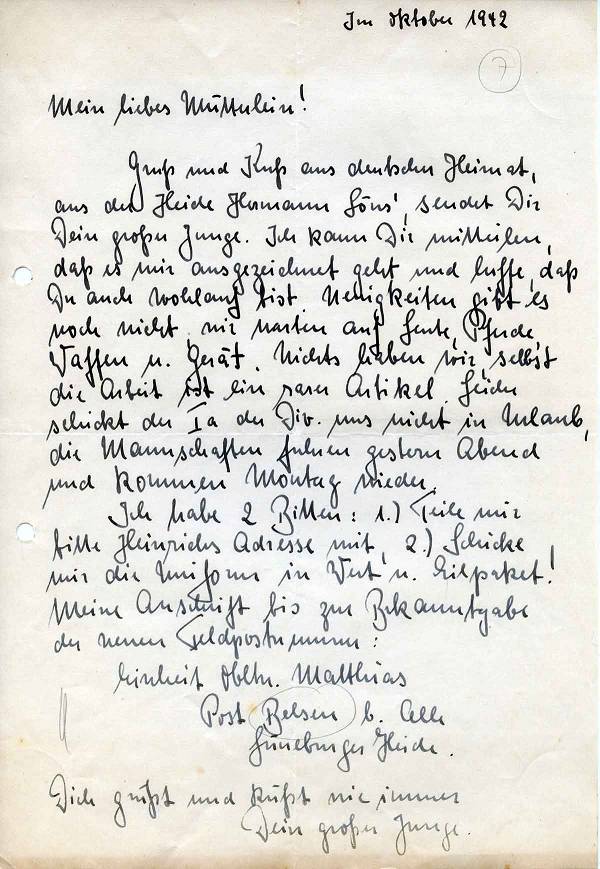 Im Oktober 1942
7
Mein liebes Mütterlein!
Gruß und Kuß aus deutscher Heimat,
aus der Heide Hermann Löns', sendet Dir
Dein großer Junge. Ich kann Dir mitteilen,
daß es mir ausgezeichnet geht und hoffe, daß
Du auch wohlauf bist. Neuigkeiten gibt es
noch nicht, wir warten auf Leute, Pferde,
Waffen u. Gerät. Nichts haben wir, selbst
die Arbeit ist ein rarer Artikel. Leider
schickt der Ia der Div. uns nicht in Urlaub,
die Mannschaften fuhren gestern Abend
und kommen Montag wieder.
Ich habe 2 Bitten: 1.) Teile mir
bitte Heinrichs Adresse mit, 2.) Schicke
mir die Uniform in Wert u. Eilpaket!
Meine Anschrift bis zur Bekanntgabe
der neuen Feldpostnummer:
Einheit Obltn. Matthias
Post Belsen b. Celle
Lüneburger Heide.
Dich grüßt und küßt wie immer
Dein großer Junge.